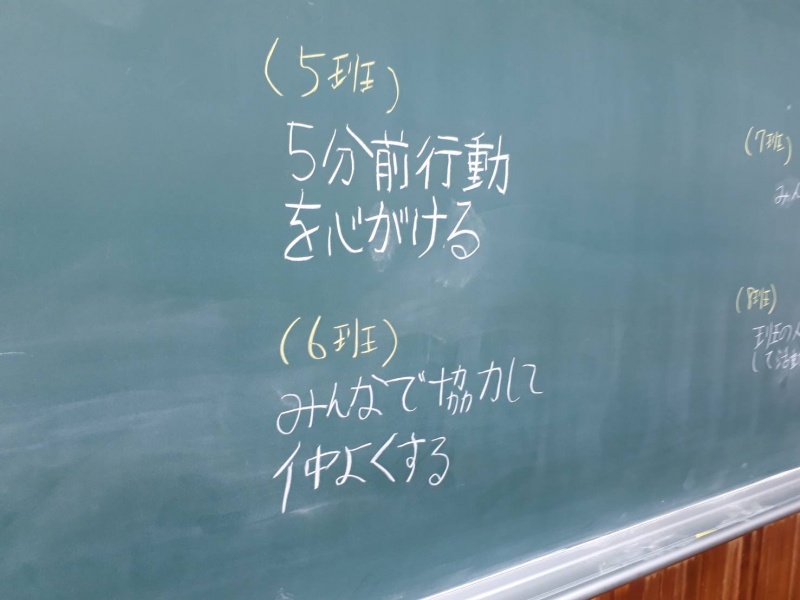 (5班)
5分前行動
を心がける
(6班)
みんなで協力して
仲よくする
(7班)
みん
(8班)
班の
して活動